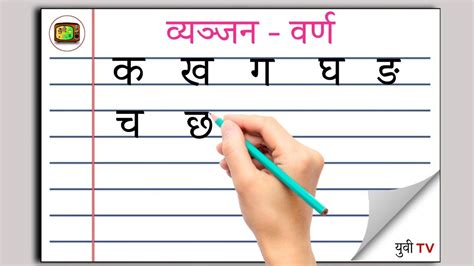 व्यञ्जन - वर्ण
क ख ग घ ङ
च छ
युवी TV